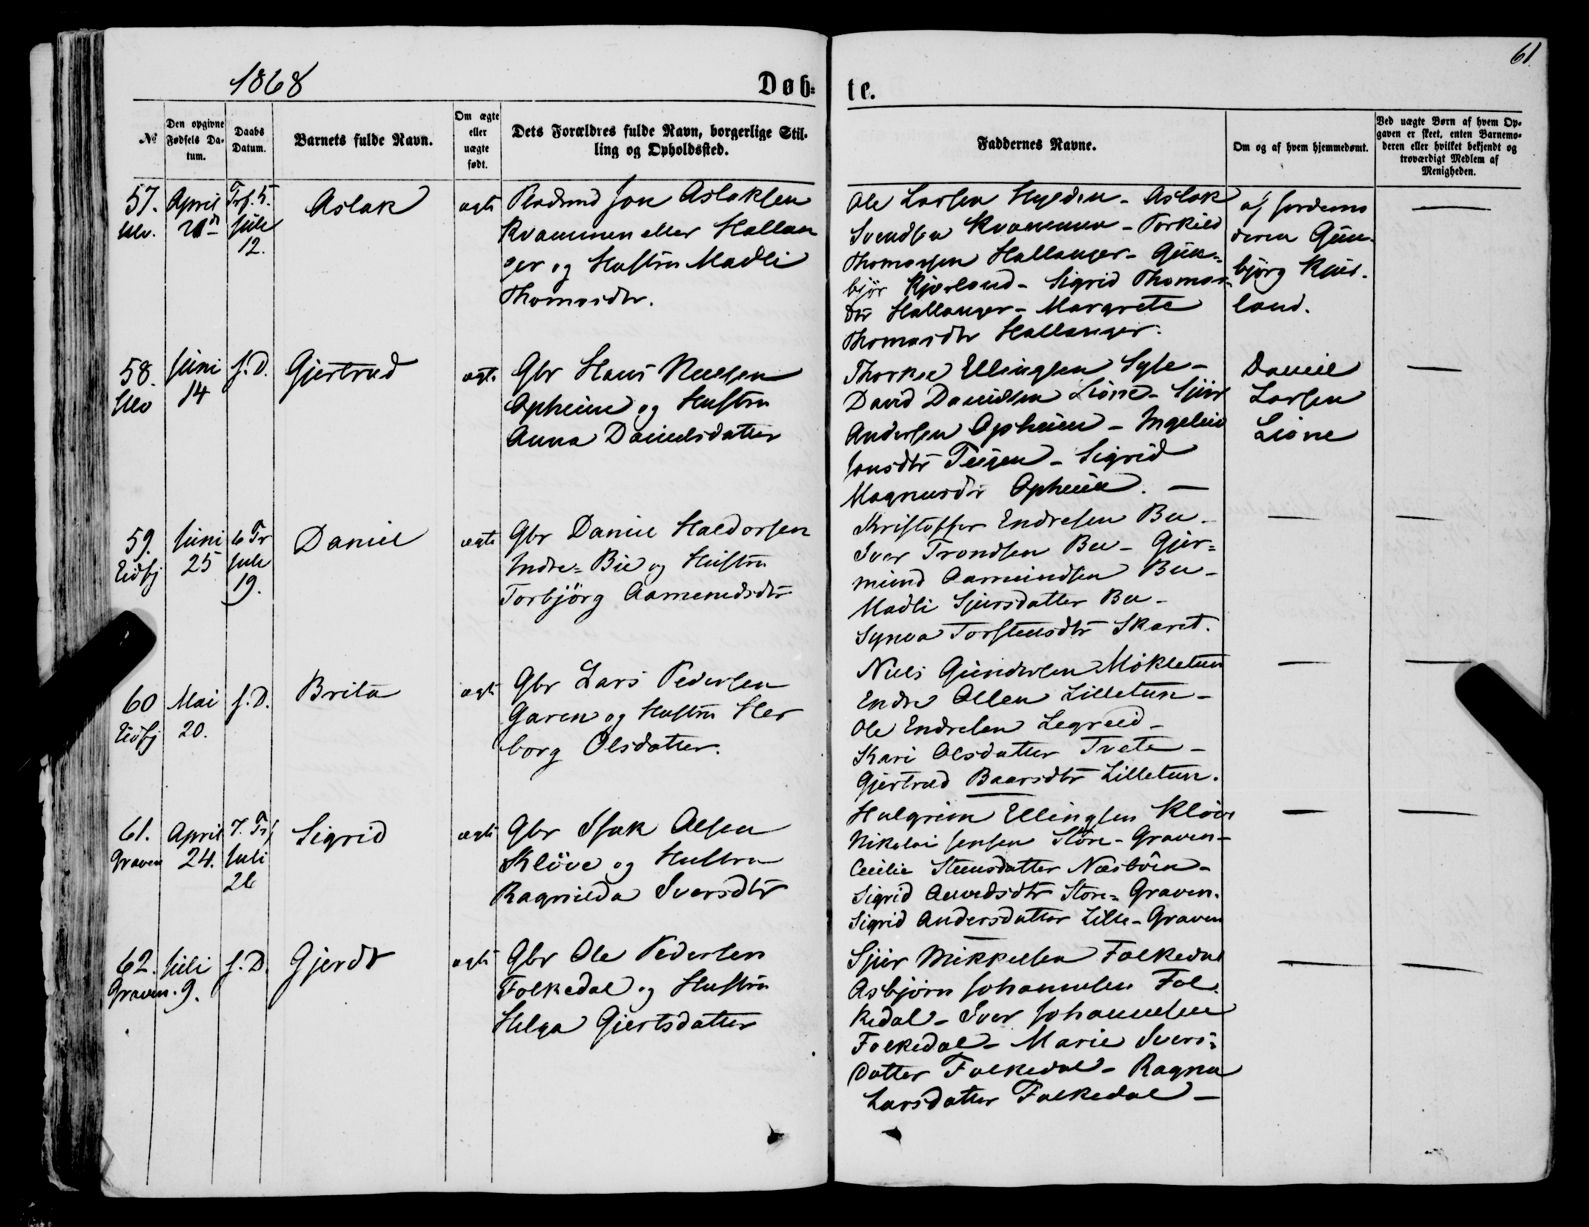 61
1868
Døb-
te.
№
Den opgivne Fødsels Da-
tum.
Daabs
Datum.
Barnets fulde Navn.
Om ægte
eller
uægte
født.
Dets Forældres fulde Navn, borgerlige Stil-
ling og Opholdssted.
Faddernes Navne.
Om og af hvem hjemmedømt.
Ved uægte Børn af hvem Op-
gaven er skeet, enten Barnemo-
deren eller hvilket bekjendt og
troværdigt Medlem af
Menigheden.
57.
Ulv.
April
Trf. 5.
Juli
12.
Aslak
ægte
Jon Aslaksen
Kvammen eller Hallan
ger og Hustru Madli
Thomasdtr.
Ole Larsen - Aslak
Svendsen Kvammen - Torkild
Thomassen Hallanger - Gun-
bjør Kjerland - Sigrid Thomas-
dtr Hallanger - Margrete
Thomasdtr Hallanger.
af Jordemo
deren Gun-
bjørg Kjer-
land.
58.
Ulv
Juni
14
f. D.
Gjertrud
ægte
Gbr Hans Nielsen
Opheim og Hustru
Anna Danielsdatter
Thorkel Ellingsen Syse -
David Davidsen Lione - Sjur
Andersen Opheim - Ingeleiv
Jonsdtr Teigen - Sigrid
Magnusdtr Opheim. -
Daniel
Larsen
Lione
59.
Eidfj
Juni
25
6 Tr
Juli
19.
Daniel
ægte
Gbr Daniel Haldorsen
Indre-Bu og Hustru
Torbjörg Aamundsdtr
Kristoffer Endresen Bu -
Iver Trondsen Bu - Gjer-
mund Aamundsen Bu -
Madli Sjursdatter Bu -
Synva Torstensdtr Skaret.
60
Eidfj
Mai
20.
f. D.
Brita
ægte
Gbr Lars Pedersen
Garen og Hustru Her
borg Olsdatter.
Niels Gundersen Mökletun
Endre Olsen Lilletun -
Ole Endresen Legreid -
Kari Olsdatter Tvete -
Gjertrud Baarsdtr Lilletun.
61.
Graven
April
24.
7. Trf
Juli
26
Sigrid
ægte
Gbr Isak Olsen
Klöve og Hustru
Ragnilda Iversdtr
Halgrim Ellingsen Klöve
Nikolai Jensen Store-Graven -
Cecilie Steensdatter Næsböen -
Sigrid Store-Graven.
Sigrid Andersdatter Lille-Graven
62.
Graven.
Juli
9.
f. D.
Gjerdt
ægte
Gbr Ole Pedersen
Folkedal og Hustru
Helga Gjertsdatter
Sjur Mikkelsen Folkedal
Asbjörn Johannesen Fol
kedal - Iver Johannesen
Folkedal - Marie Ivers-
datter Folkedal - Ragna
Larsdatter Folkedal -